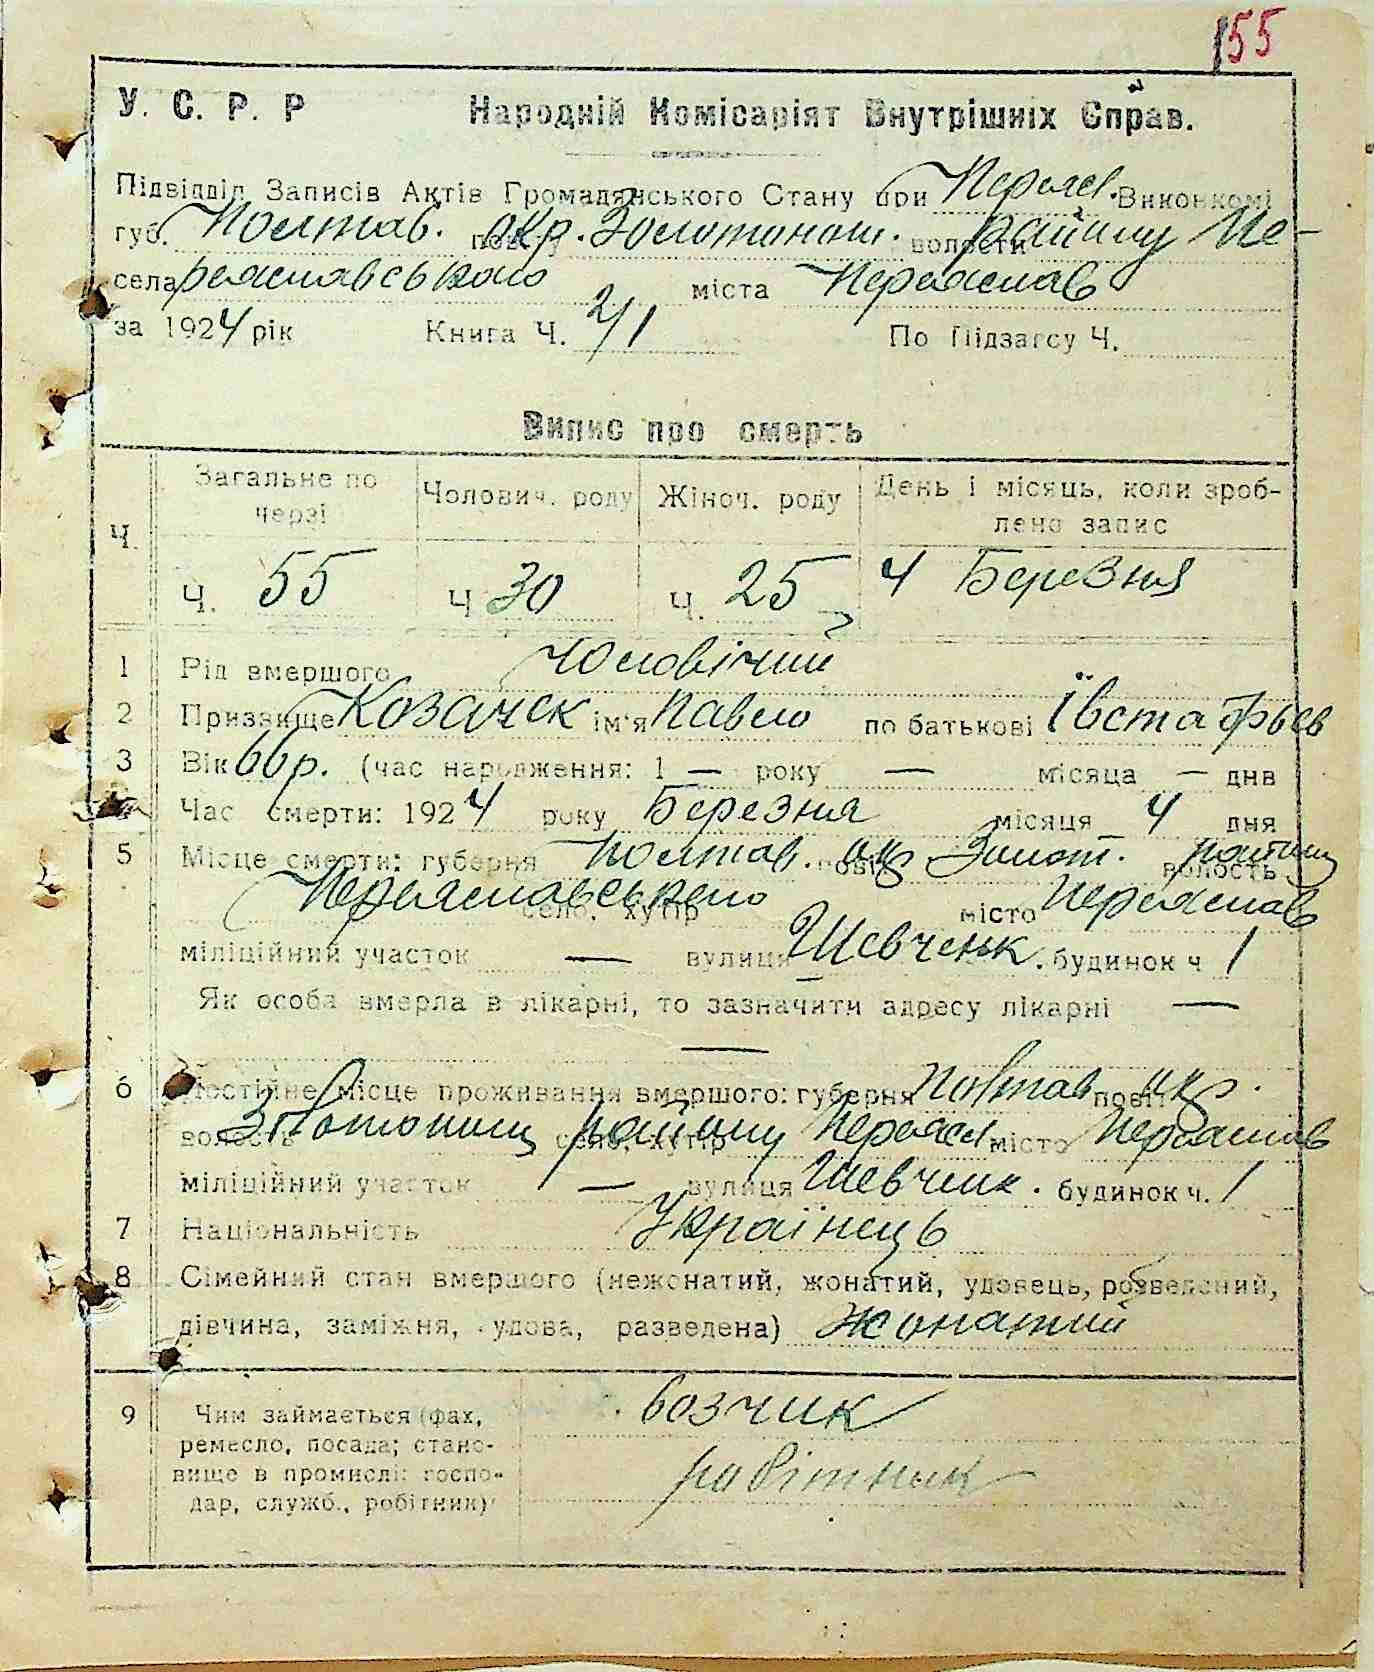 155
У. С. Р. Р Народній Комісаріят Внутрішніх Справ.
Підвідділ Записів Актів Громадянського Стану при Переясл. Виконкомі
губ. Полтав. повіту окр. Золотонош. волости району Пе-
села реяславського міста Переяслав
за 1924 рік Книга Ч. 2/1 По Підзагсу Ч.
Випис про смерть
Ч. Загальне по черзі Чолович. роду Жіноч. роду День і місяць, коли зроб-
лено запис
Ч. 55 Ч 30 Ч. 25 4 Березня
1 Рід вмершого Чоловічий
2 Призвище Козачек ім'я Павло по батькові Івстафьев
3 Вік 66 р. (час народження: 1 — року — місяца — днв
4 Час смерти: 1924 року Березня місяця 4 дня
5 Місце смерти: губерня Полтав. повіт окр Золот. волость району
Переяславського село, хутір місто Переяслав
міліційний участок — вулиця Шевченк. будинок ч 1
Як особа вмерла в лікарні, то зазначити адресу лікарні —
—
6 Постійне місце проживання вмершого: губерня Полтав повіт окр.
волость Золотонош району село, хутір Переясл місто Переяслав
міліційний участок — вулиця Шевченк. будинок ч. 1
7 Національність Українець
8 Сімейний стан вмершого (нежонатий, жонатий, удовець, розведений,
дівчина, заміжня, удова, разведена) Жонатий
9 Чим займається (фах, возчик
ремесло, посада; стано-
вище в промислі: госпо- робітник
дар, служб., робітник)